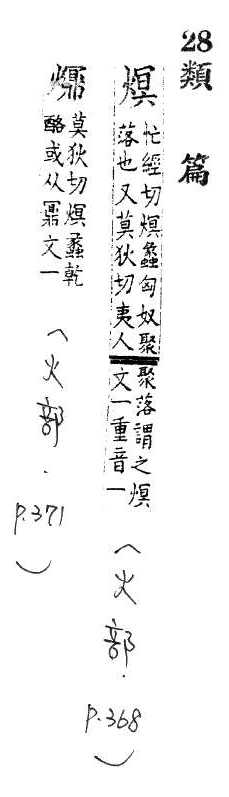 28
類篇
熐
忙經切熐蠡匈奴聚
落也又莫狄切夷人
聚落謂之熐
文一重音一
(火部.
P.368
)
莫狄切熐蠡乾
酪或从鼏文一
(火部.
P.371
)